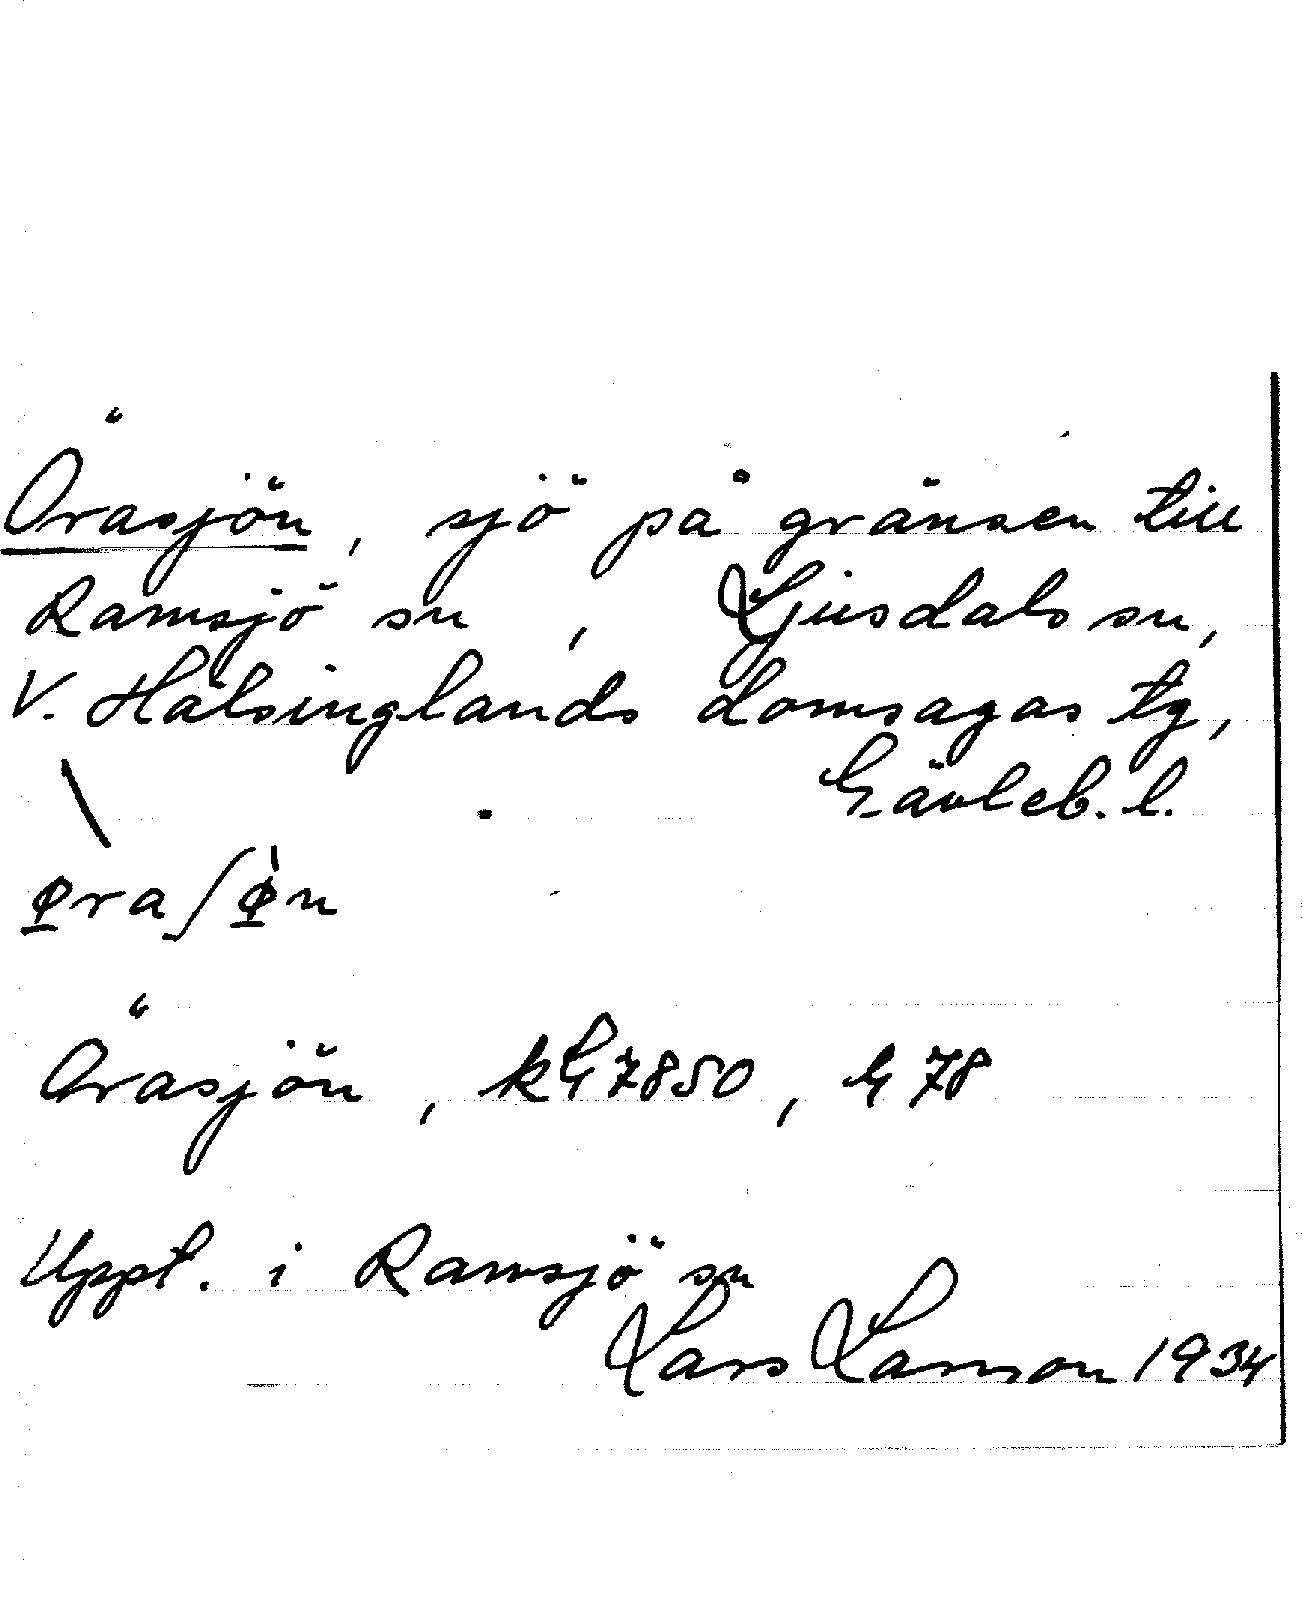 Örasjön, sjö på gränsen till
Ramsjö sn, Ljusdals sn,
V. Hälsinglands domsagas tg,
Gävleb. l.
ø̲raʃø̲̀n
Örasjön, kG 7850, G 78
Uppt. i Ramsjö sn
Lars Larsson 1934